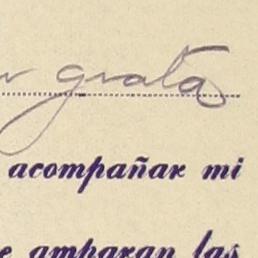 grata
acompañar mi
amparan las